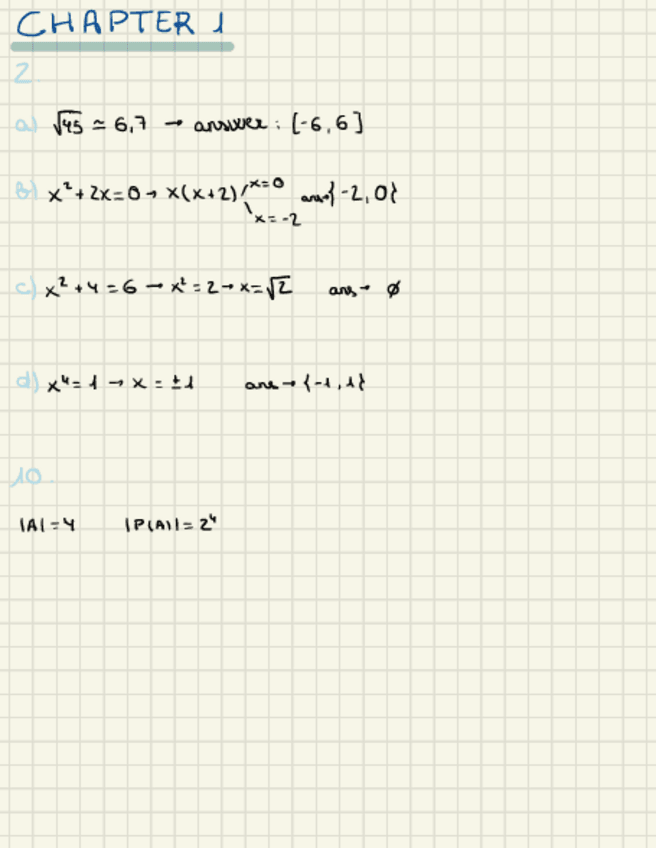 CHAPTER 1
2
a) √45 ≃ 6,7 → answer : [-6, 6]
b) x² + 2x = 0 → x(x+2) x=0 ans→{-2, 0}
x = -2
c) x² + 4 = 6 → x² = 2 → x = √2 ans → ∅
d) x⁴ = 1 → x = ±1 ans → {-1, 1}
10.
|A| = 4 |P(A)| = 2⁴